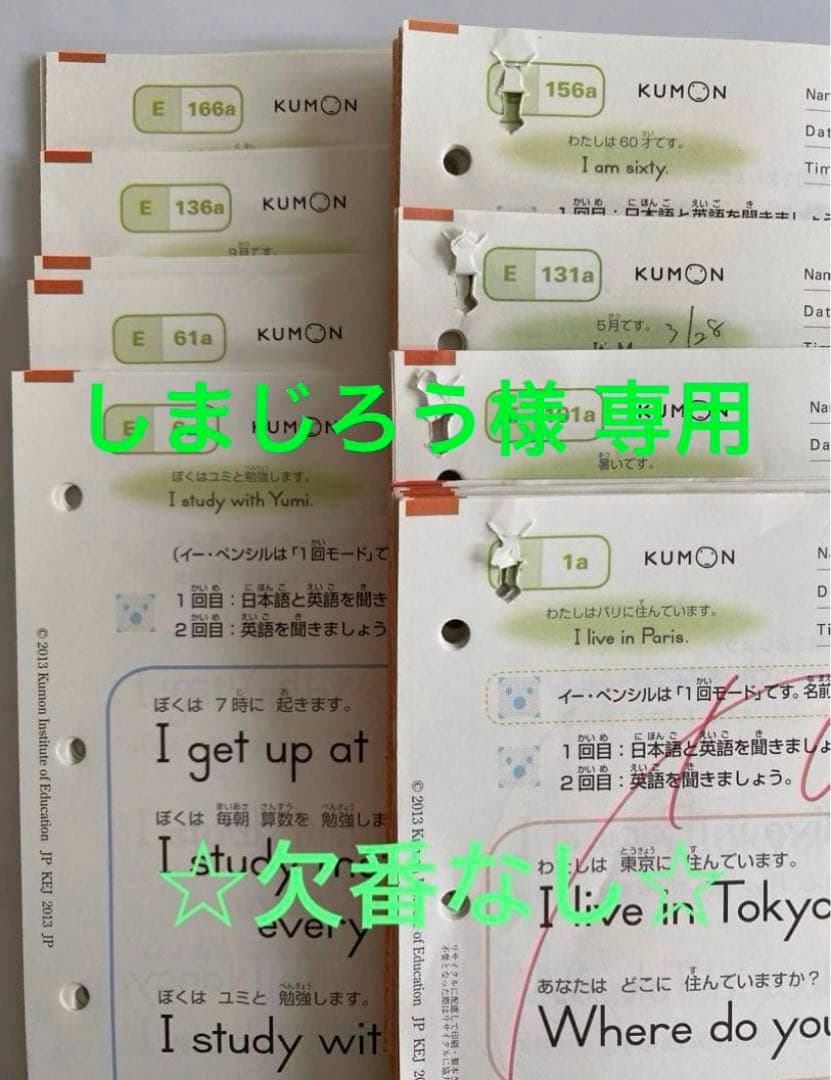 E 166a KUMON
E 136a KUMON
9月です。
E 61a KUMON
E KUMON
ぼくはユミと勉強します。
I study with Yumi.
(イー・ペンシルは「1回モード」で
1回目：日本語と英語を聞き
2回目：英語を聞きましょう
ぼくは 7時に 起きます。
I get up at
ぼくは 毎朝 算数を 勉強しま
I study
every
ぼくは ユミと 勉強します。
I study wit
© 2013 Kumon Institute of Education JP KEJ 2013 JP
156a KUMON
Nar
Dat
Tim
わたしは60才です。
I am sixty.
1回目：日本語と英語を聞きましょう
E 131a KUMON
Nan
Dat
5月です。
3/28
101a KUMON
Na
Da
暑いです。
1a KUMON
N
D
Ti
わたしはパリに住んでいます。
I live in Paris.
イー・ペンシルは「1回モード」です。名前
1回目：日本語と英語を聞きましょ
2回目：英語を聞きましょう。
わたしは 東京に 住んでいます。
I live in Tokyo
あなたは どこに 住んでいますか？
Where do you
© 2013 Kumon Institute of Education JP KEJ 2013
しまじろう様 専用
☆欠番なし☆